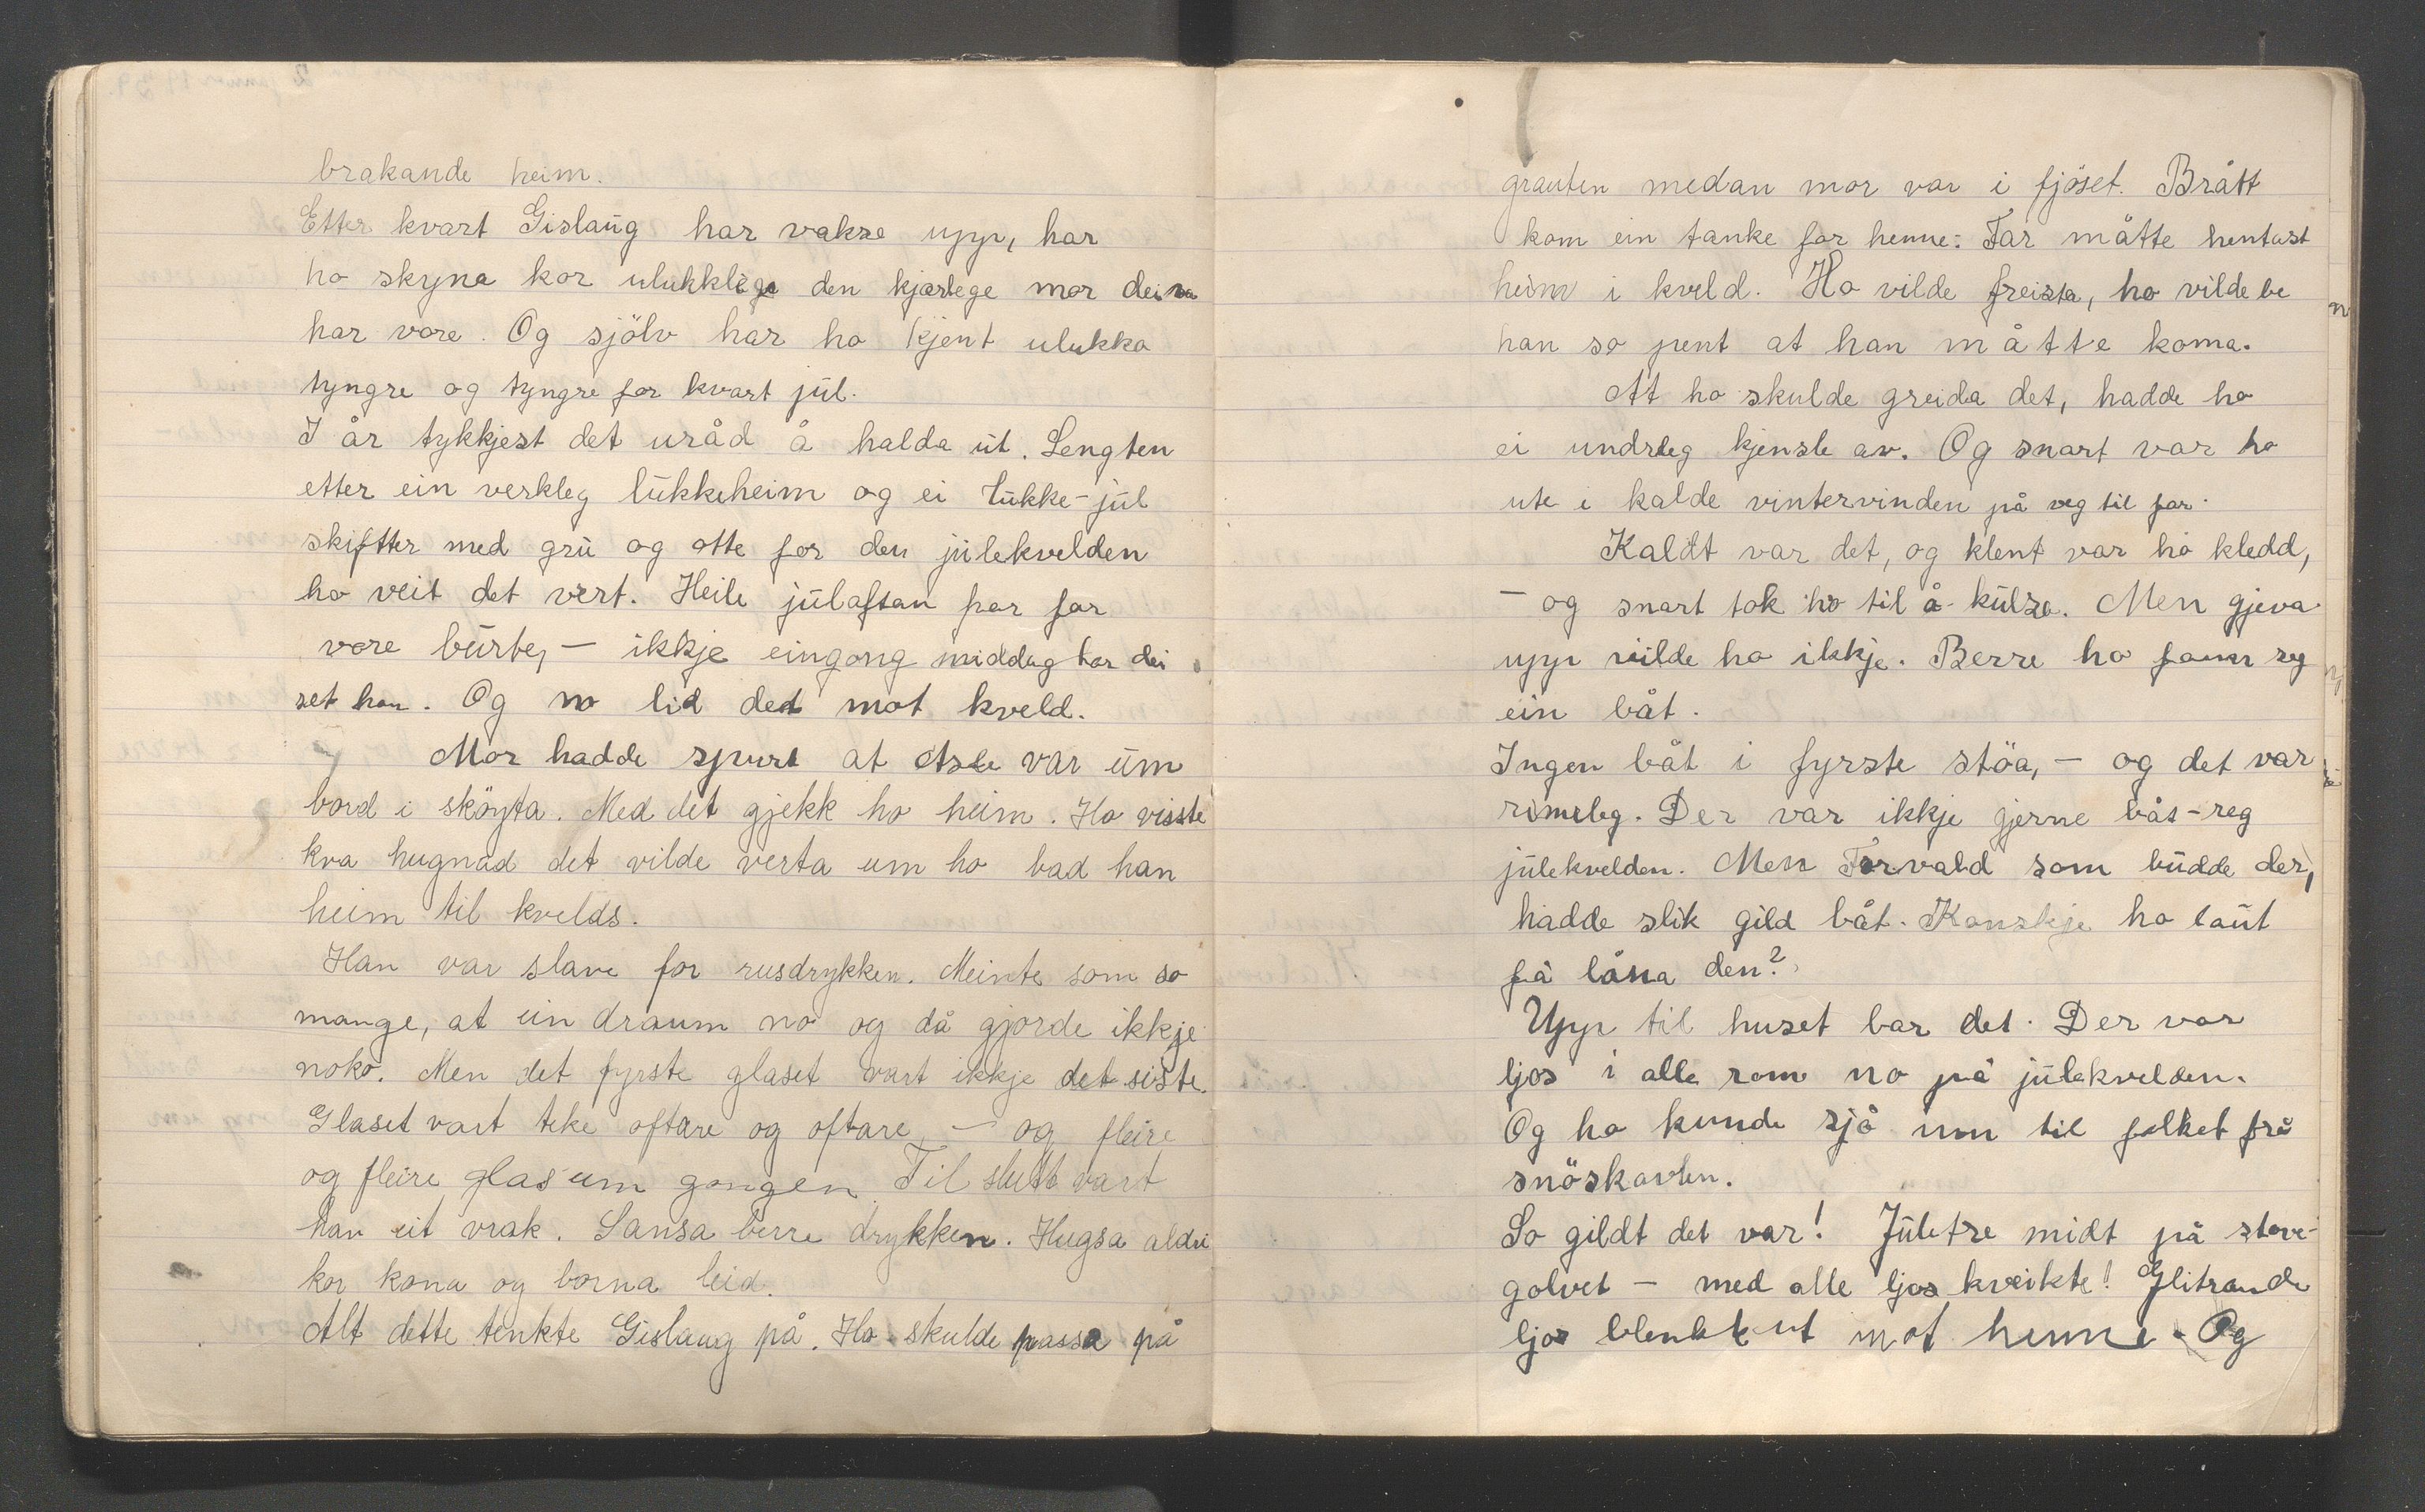 brakande heim.
Etter kvart Gislaug har vakse upp, har
ho skyna kor ulukkleg den kjærlege mor deira
har vore. Og sjölv har ho kjent ulukka
tyngre og tyngre for kvart jul.
I år tykkjest det uråd å halda ut. Lengten
etter ein verkleg lukkeheim og ei lukke-jul
skiftter med gru og otte for den julekvelden
ho veit det vert. Heile julaftan har far
vore burte, – ikkje eingong middag har dei
set han. Og no lid det mot kveld.
Mor hadde spurt at Asle var um
bord i sköyta. Med det gjekk ho heim. Ho visste
kva hugnad det vilde verta um ho bad han
heim til kvelds.
Han var slave for rusdrykken. Meinte som so
mange, at ein draum no og då gjorde ikkje
noko. Men det fyrste glaset vart ikkje det siste.
Glaset vart teke oftare og oftare, – og fleire
og fleire glas um gongen. Til slutt vart
han eit vrak. Sansa berre drykken. Hugsa aldri
kor kona og borna leid.
Alt dette tenkte Gislaug på. Ho skulde passa på
grauten medan mor var i fjöset. Brått
kom ein tanke for henne: Far måtte hentast
heim i kveld. Ho vilde freista, ho vilde be
han so pent at han måtte koma.
At ho skulde greida det, hadde ho
ei undrleg kjensle av. Og snart var ho
ute i kalde vintervinden på veg til far.
Kaldt var det, og klent var ho kledd,
– og snart tok ho til å kulsa. Men gjeva
upp vilde ho ikkje. Berre ho fann seg
ein båt.
Ingen båt i fyrste stöa, – og det var
rimeleg. Der var ikkje gjerne båt-reg
julekvelden. Men Torvald som budde der,
hadde slik gild båt. Kanskje ho laut
få låna den?
Upp til huset bar det. Der var
ljos i alle rom no på julekvelden.
Og ho kunde sjå inn til folket frå
snöskavlen.
So gildt det var! Juletre midt på stove-
golvet – med alle ljos kveikte! Glitrande
ljos blenkt ut mot henne. Og